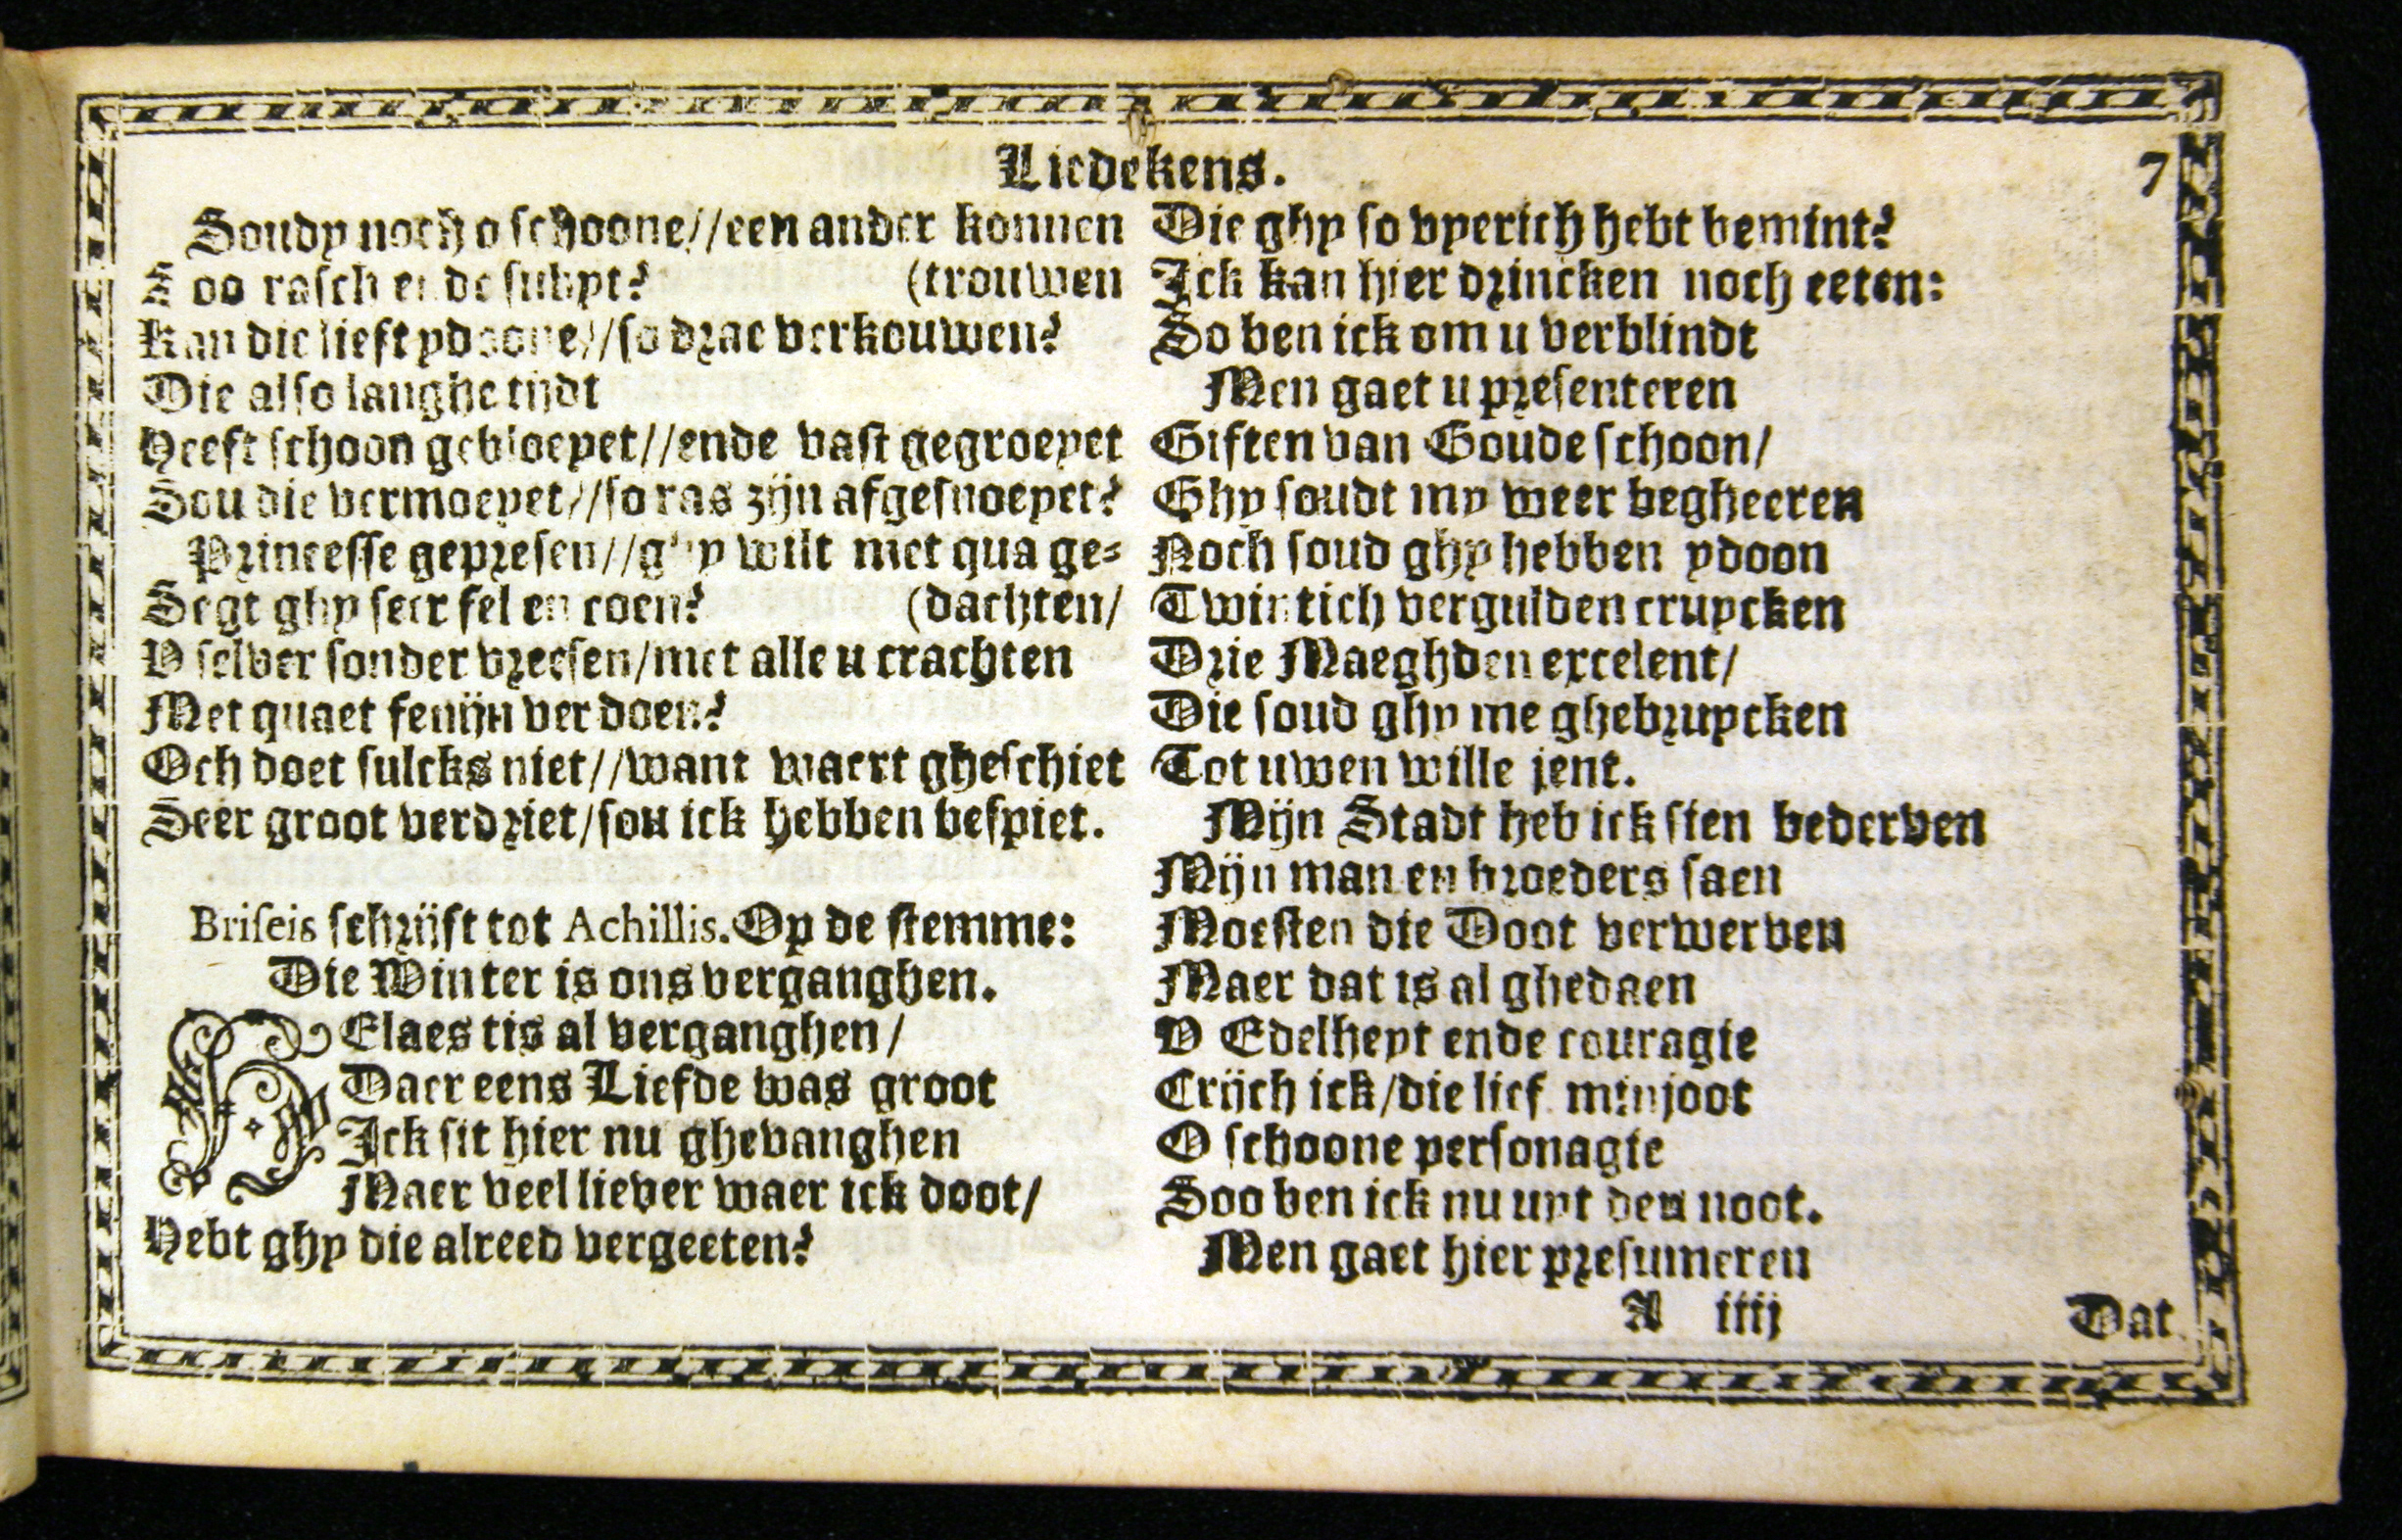 Liedekens. 7
Soudy noch o schoone//een ander konnen
Soo rasch ende subyt? (trouwen
Kan die lieft ydoone//so drae verkouwen?
Die also langhe tijdt
Heeft schoon gebloeyet//ende vast gegroeyet
Sou die vermoeyet//so ras zijn afgesnoeyet?
Princesse gepresen//ghy wilt met qua ge-
Segt ghy seer fel en coen? (dachten/
V selver sonder vreesen/met alle u crachten
Met quaet fenijn verdoen?
Och doet sulcks niet//want waert gheschiet
Seer groot verdriet/sou ick hebben bespiet.
Briseis schrijft tot Achillis. Op de stemme:
Die Winter is ons verganghen.
HElaes tis al verganghen/
Daer eens Liefde was groot
Ick sit hier nu ghevanghen
Maer veel liever waer ick doot/
Hebt ghy die alreed vergeeten?
Die ghy so vyerich hebt bemint?
Ick kan hier drincken noch eeten:
So ben ick om u verblindt
Men gaet u presenteren
Giften van Goude schoon/
Ghy soudt my weer begheeren
Noch soud ghy hebben ydoon
Twintich vergulden cruycken
Drie Maeghden excelent/
Die soud ghy me ghebruycken
Tot uwen wille jent.
Mijn Stadt heb ick sien bederven
Mijn man en broeders saen
Moesten die Doot verwerven
Maer dat is al ghedaen
V Edelheyt ende couragie
Crijch ick/die lief minjoot
O schoone personagie
Soo ben ick nu uyt den noot.
Men gaet hier presumeren
A iiij Dat